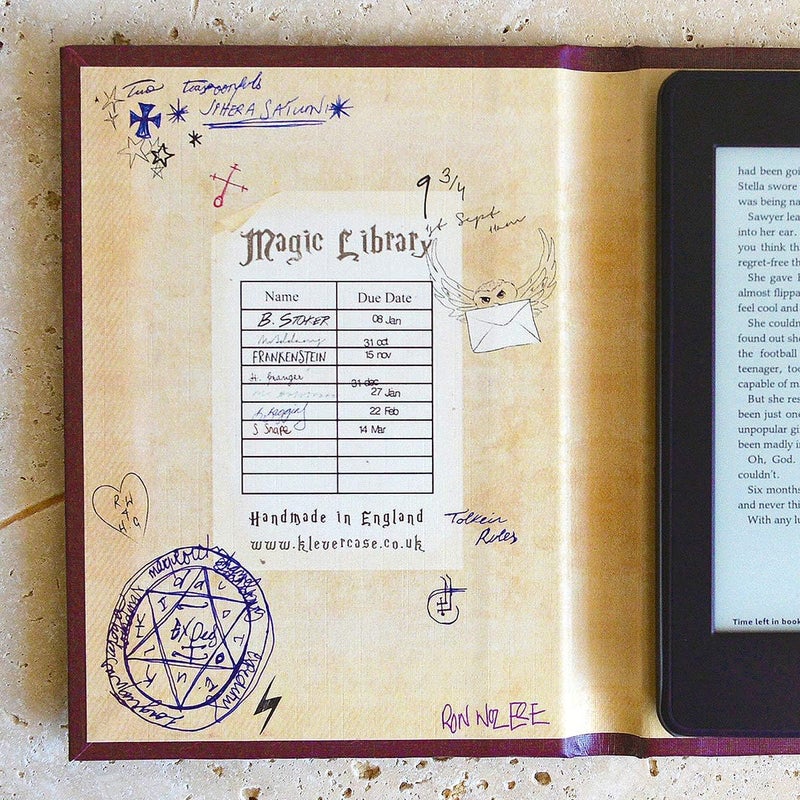 Two teaspoonfuls
SPHERA SATURNI
9 3/4
1st Sept
11am
Magic Library
Name Due Date
B. STOKER 08 Jan
31 oct
FRANKENSTEIN 15 nov
H. Granger 31 dec
27 Jan
22 Feb
S Snape 14 Mar
Handmade in England
www.klevercase.co.uk
Tolkein
Rules
R W
+
H G
RON WOZ ERE
had been goi
Stella swore
was being na
Sawyer lea
into her ear.
you think th
regret-free th
She gave h
almost flippa
feel cool and
She couldn
found out she
the football
teenager, too
capable of m
But she res
been just one
unpopular gi
been madly i
Oh, God.
couldn't.
Six months
and never thi
With any lu
Time left in book